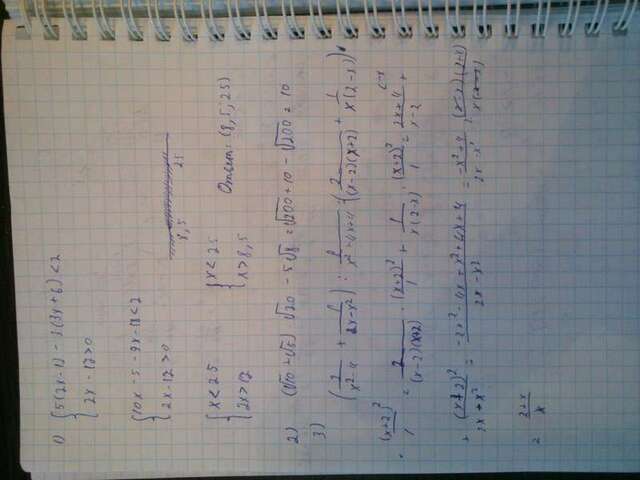 1) { 5(2x-1) - 3(3x+6) < 2
2x - 17 > 0
{ 10x - 5 - 9x - 18 < 2
2x - 17 > 0
8,5 25
{ x < 25
2x > 17
{ x < 25
x > 8,5
Ответ: (8,5; 25)
2) (√10 + √5) · √20 - 5√8 = √200 + 10 - √200 = 10
3)
(2/(x²-4) + 1/(2x-x²)) : 1/(x²+4x+4) = (2/((x-2)(x+2)) + 1/(x(2-x))) ·
· (x+2)²/1 = 2/((x-2)(x+2)) · (x+2)²/1 + 1/(x(2-x)) · (x+2)²/1 = (2x+4)/(x-2) (-x +
+ (x+2)²/(2x-x²) = (-2x²-4x+x²+4x+4)/(2x-x²) = (-x²+4)/(2x-x²) = ((2-x)(2+x))/(x(2-x))
= (2+x)/x